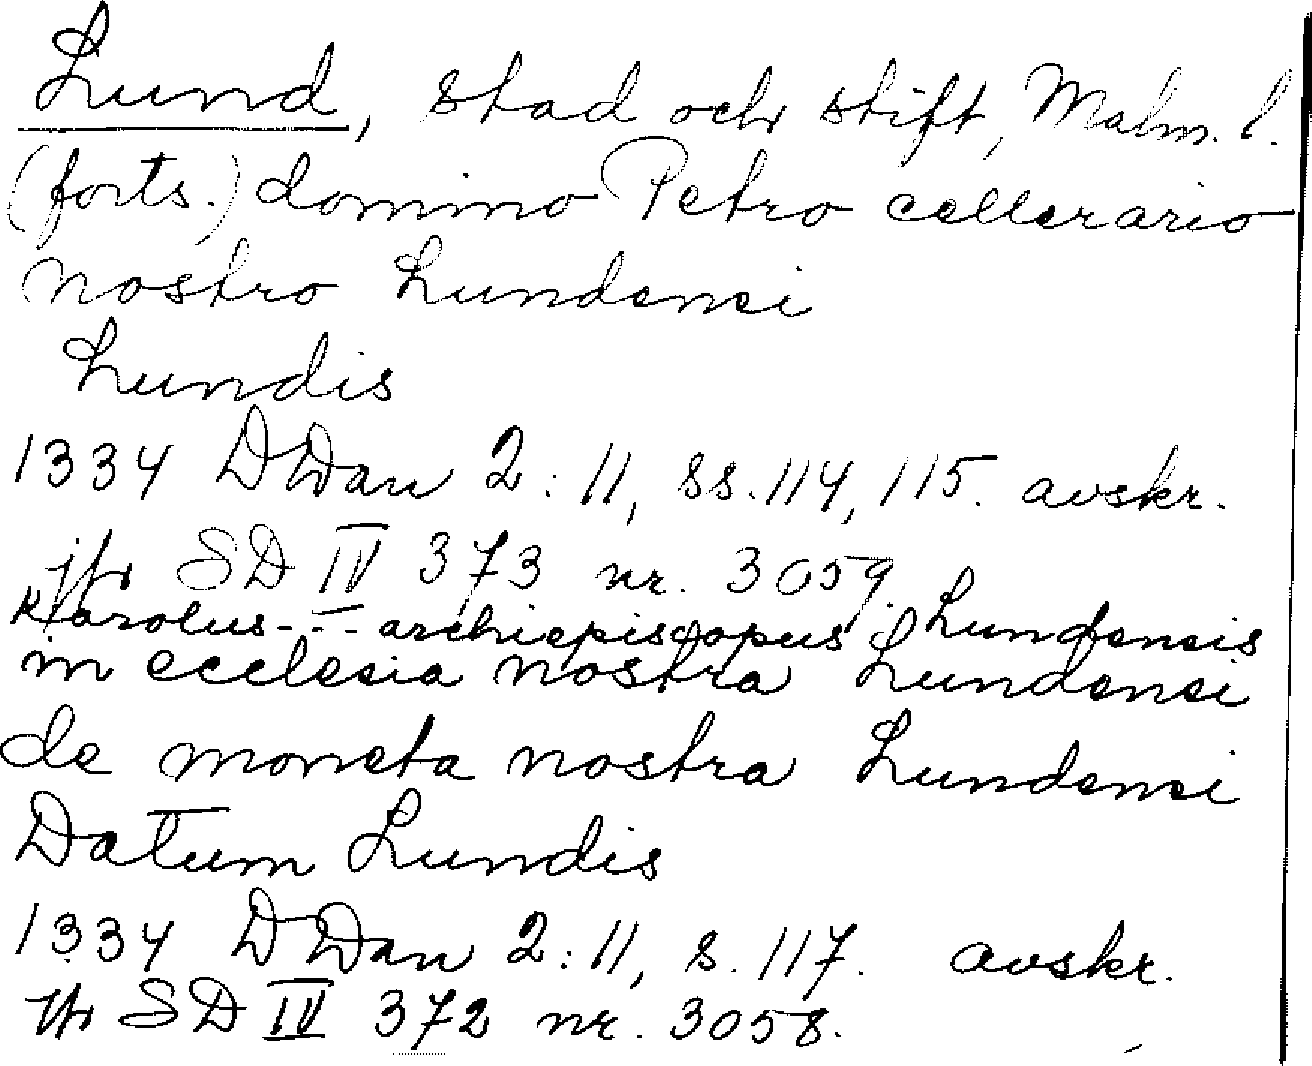 Lund, stad och stift, Malm. l.
(forts.) domino Petro cellerario
nostro Lundensi
Lundis
1334 DDan 2:11, ss. 114, 115. avskr.
jfr SD IV 373 nr. 3059.
Karolus - - - archiepiscopus Lundensis
in ecclesia nostra Lundensi
de moneta nostra Lundensi
Datum Lundis
1334 DDan 2:11, s. 117. avskr.
jfr SD IV 372 nr. 3058.